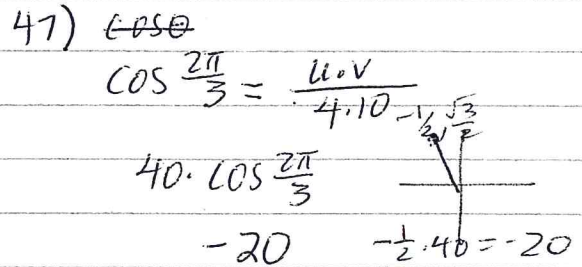 47) cosθ
cos 2π/3 = u·v / 4·10
-1/2, √3/2
40· cos 2π/3
-20
-1/2 · 40 = -20